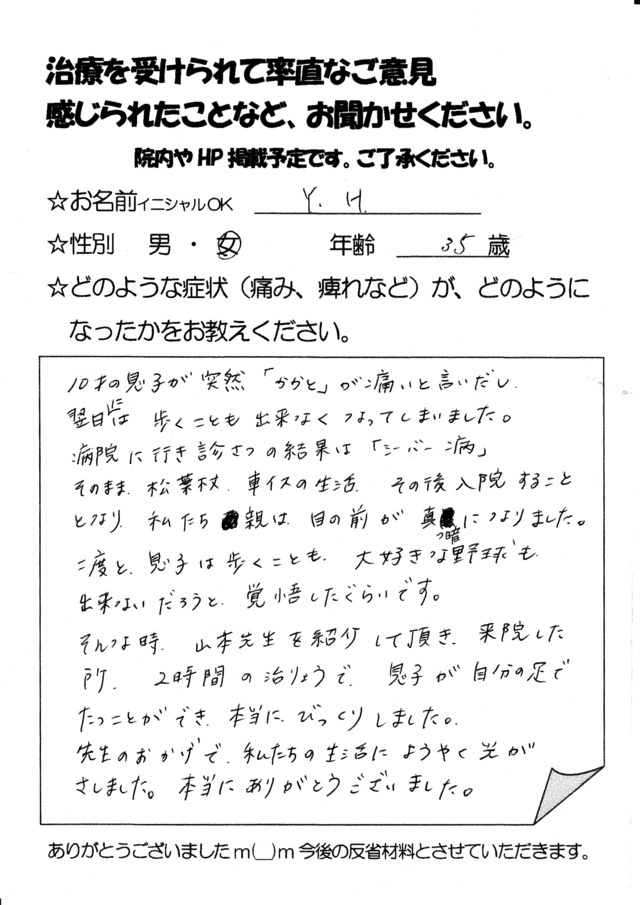 治療を受けられて率直なご意見
感じられたことなど、お聞かせください。
院内やHP掲載予定です。ご了承ください。
☆お名前イニシャルOK Y. H.
☆性別 男・女 年齢 35 歳
☆どのような症状（痛み、痺れなど）が、どのように
なったかをお教えください。
10才の息子が突然「かかと」が痛いと言いだし
翌日には 歩くことも出来なくなってしまいました。
病院に行き診さつの結果は「シーバー病」
そのまま、松葉杖、車イスの生活、その後入院すること
となり、私たち親は、目の前が真っ暗になりました。
二度と、息子は歩くことも、大好きな野球も
出来ないだろうと、覚悟したぐらいです。
そんな時、山本先生を紹介して頂き、来院した
所、2時間の治りょうで、息子が自分の足で
たつことができ、本当に、びっくりしました。
先生のおかげで、私たちの生活にようやく光が
さしました。本当にありがとうございました。
ありがとうございましたm(__)m今後の反省材料とさせていただきます。